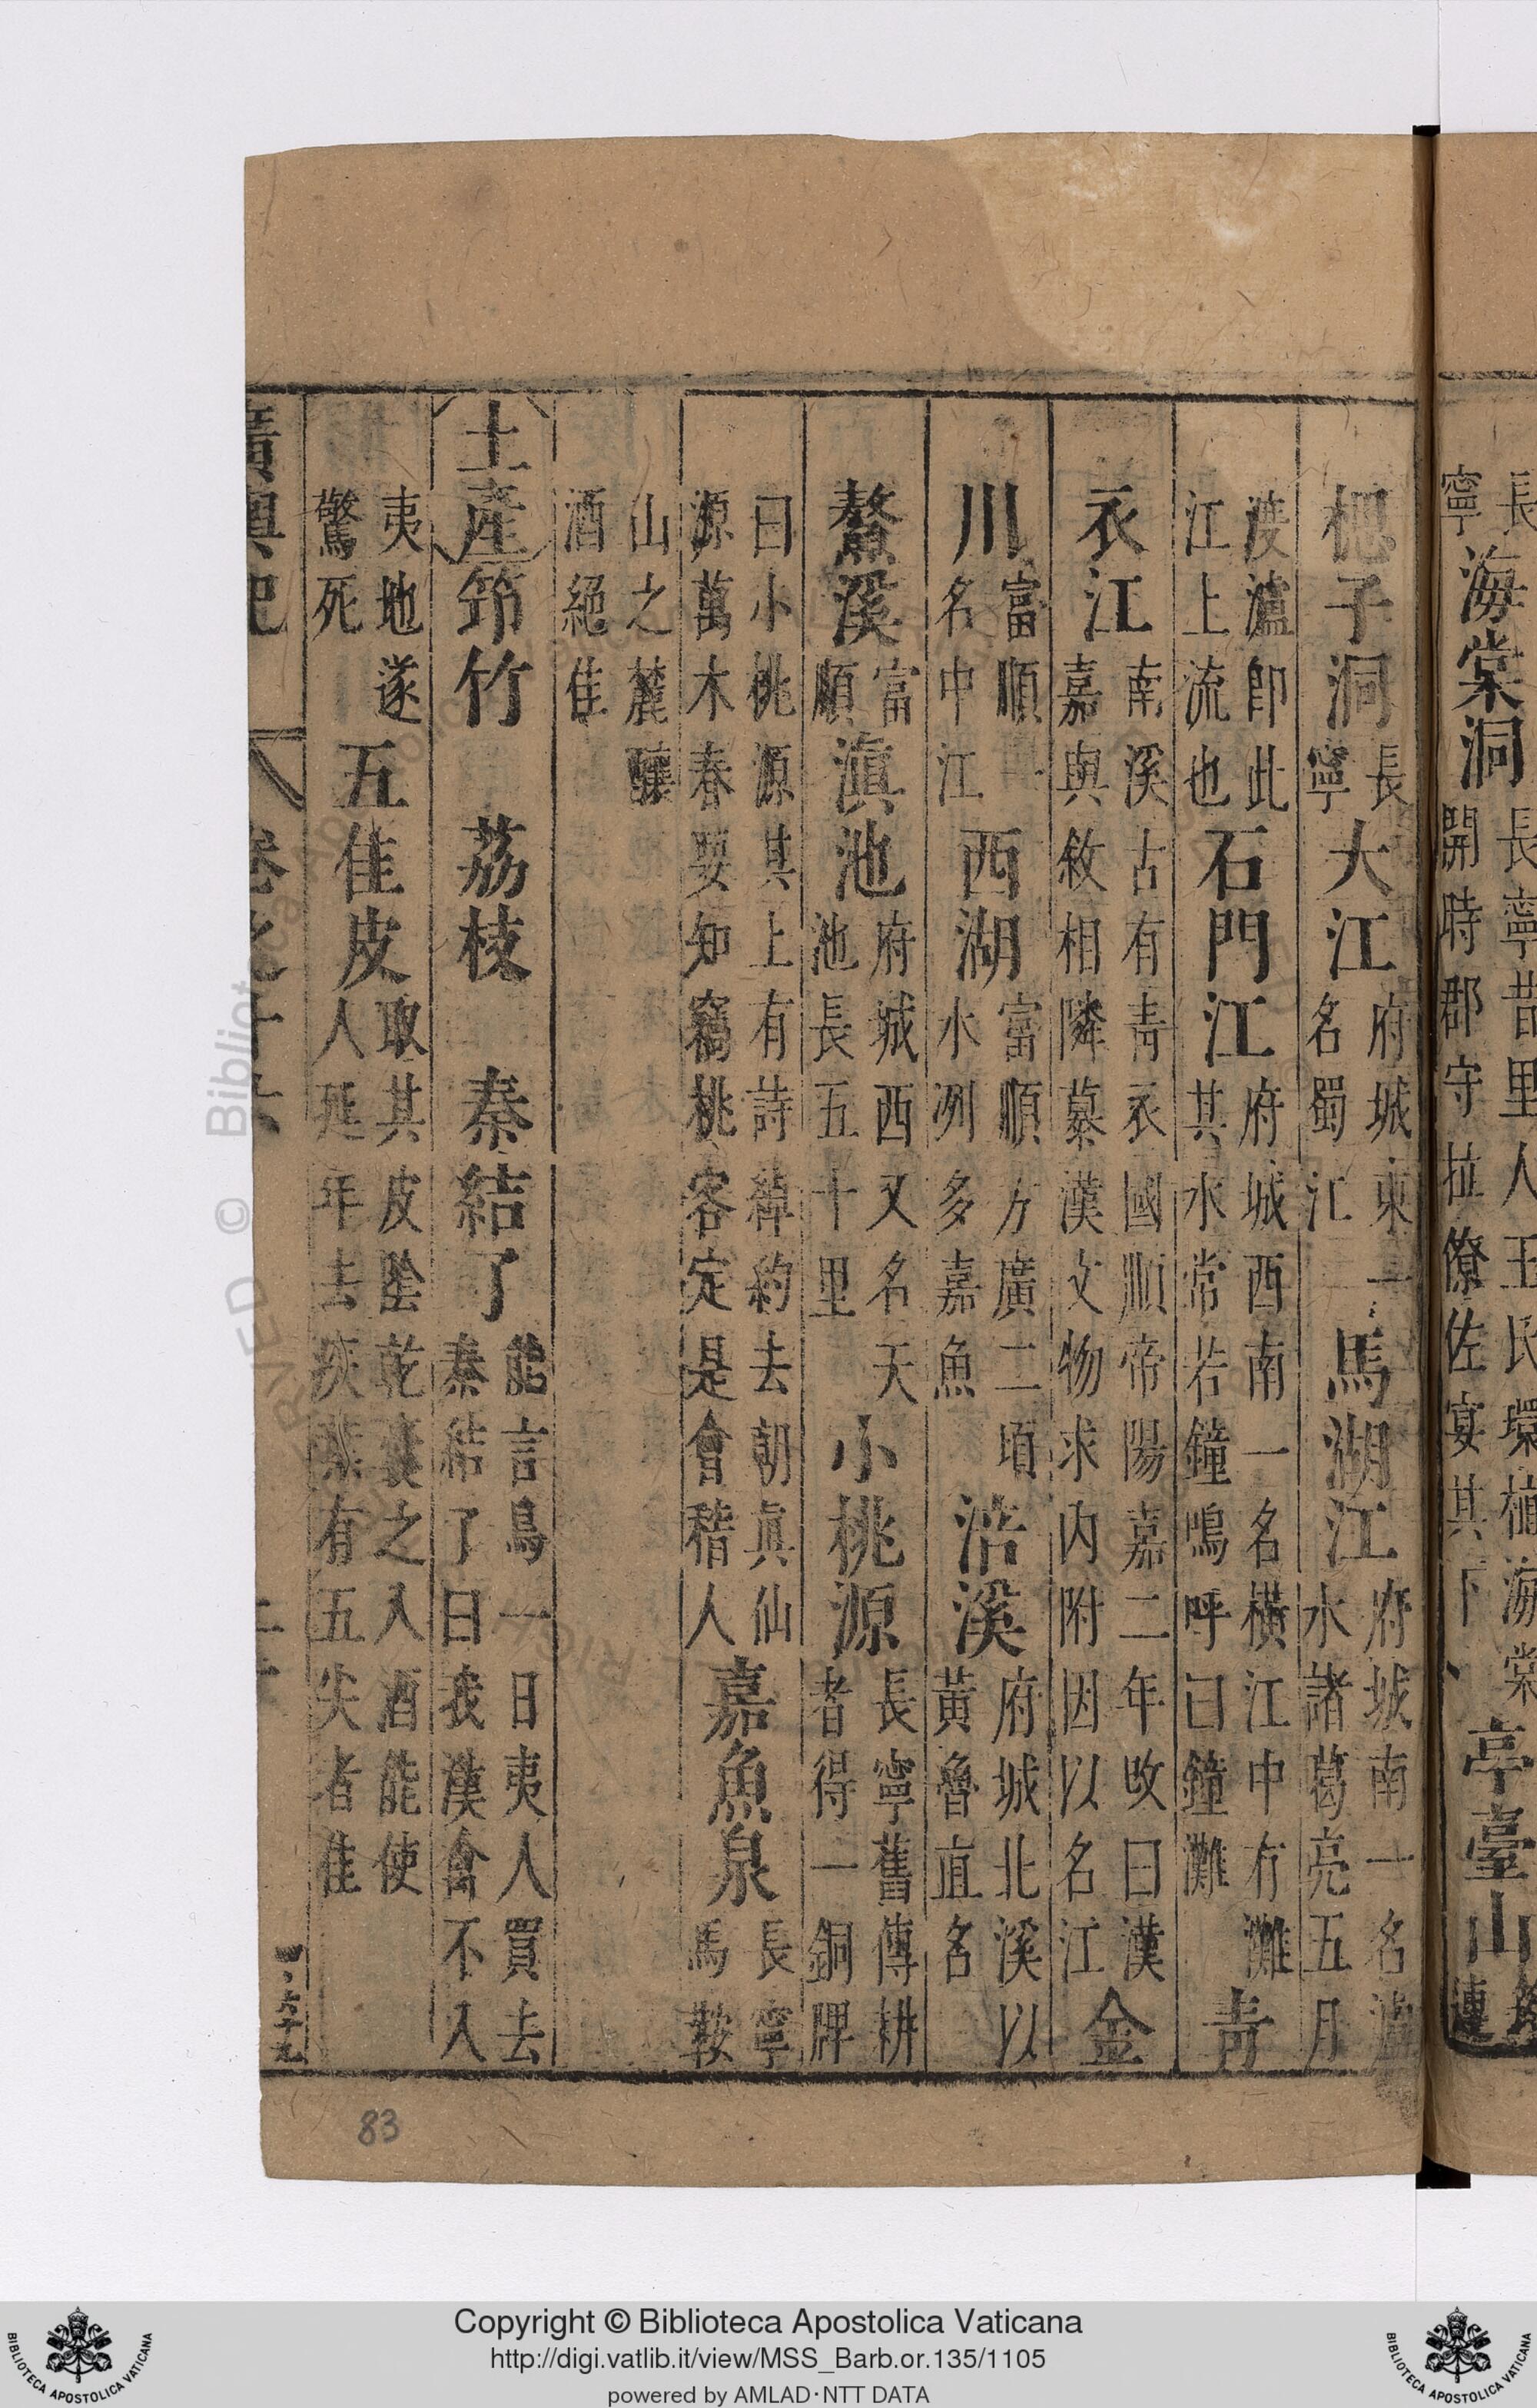 長寧海棠洞長寧昔里人王氏環植海棠開時郡守拉僚佐宴其下亭臺山
子洞長寧大江府城東一名蜀江馬湖江府城南一名瀘水諸葛亮五月
渡瀘即此江上流也石門江府城西南一名橫江中有灘其水常若鐘鳴呼曰鐘灘青
衣江南溪古有青衣國順帝陽嘉二年改曰漢嘉與敘相隣慕漢文物求內附因以名江金
川富順名中江西湖富順方廣二頃水冽多嘉魚浩溪府城北溪以黃魯直名
鰲溪富順滇池府城西又名天池長五十里小桃源長寧舊傳耕者得一銅牌
曰小桃源其上有詩綽約去朝眞仙源萬木春要知竊桃客定是會稽人嘉魚泉長寧馬鞍
山之麓釀酒絕佳
土產筇竹 荔枝 秦結了能言鳥一日夷人買去秦結了曰我漢禽不入
夷地遂驚死五佳皮取其皮陰乾囊之入酒能使人延年去疾葉有五尖者佳
廣輿記 卷之十六
83
Copyright © Biblioteca Apostolica Vaticana
http://digi.vatlib.it/view/MSS_Barb.or.135/1105
powered by AMLAD·NTT DATA